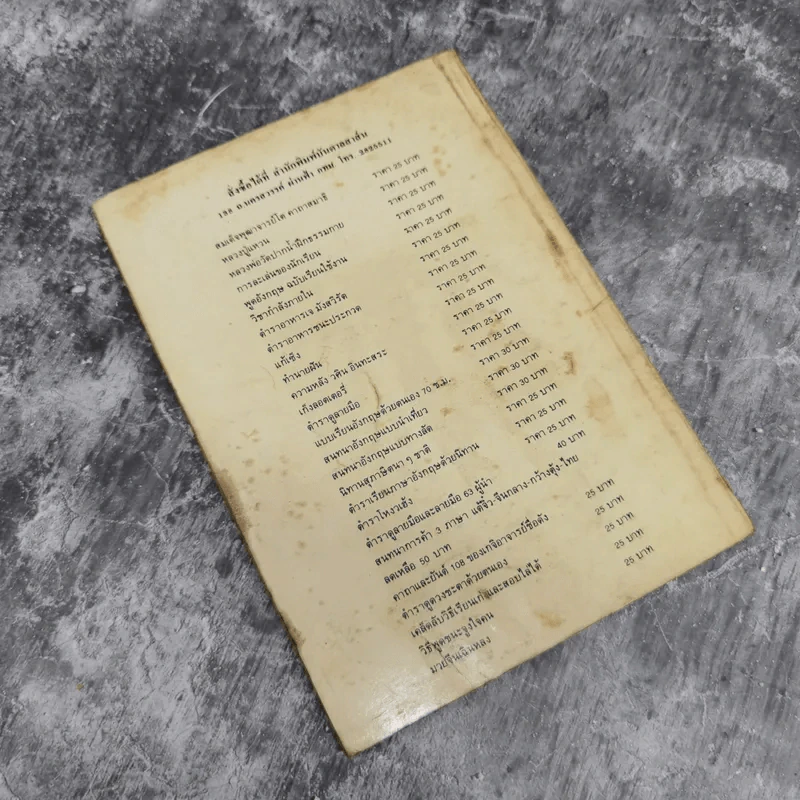 สั่งซื้อได้ที่ สำนักพิมพ์บันดาลสาส์น
188 ถ.นครสวรรค์ ผ่านฟ้า กทม โทร. 2825511
สมเด็จพุฒาจารย์โต คาถาสมาธิ ราคา 25 บาท
หลวงปู่แหวน ราคา 25 บาท
หลวงพ่อวัดปากน้ำฝึกธรรมกาย ราคา 25 บาท
การละเล่นของนักเรียน ราคา 25 บาท
พูดอังกฤษ ฉบับเรียนใช้งาน ราคา 25 บาท
วิชากำลังภายใน ราคา 25 บาท
ตำราอาหารเจ มังสวิรัต ราคา 25 บาท
ตำราอาหารชนะประกวด ราคา 25 บาท
แก้เซ็ง ราคา 25 บาท
ทำนายฝัน ราคา 25 บาท
ความหลัง วศิน อินทะสระ ราคา 25 บาท
เก็งลอตเตอรี่ ราคา 25 บาท
ตำราดูลายมือ ราคา 30 บาท
แบบเรียนอังกฤษด้วยตนเอง 70 ช.ม. ราคา 30 บาท
สนทนาอังกฤษแบบนำเที่ยว ราคา 30 บาท
สนทนาอังกฤษแบบทางลัด ราคา 25 บาท
นิทานสุภาษิตนา ๆ ชาติ ราคา 25 บาท
ตำราเรียนภาษาอังกฤษด้วยนิทาน ราคา 25 บาท
ตำราโหงวเฮ้ง 40 บาท
ตำราดูลายมือและลายมือ 63 ผู้นำ
สนทนาการค้า 3 ภาษา แต้จิ๋ว-จีนกลาง-กวางตุ้ง-ไทย
ลดเหลือ 50 บาท
คาถาและยันต์ 108 ของเกจิอาจารย์ชื่อดัง 25 บาท
ตำราดูดวงชะตาด้วยตนเอง 25 บาท
เคล็ดลับวิธีเรียนเก่งและสอบไล่ได้ 25 บาท
วิธีพูดชนะจูงใจคน 25 บาท
มวยจีนเฉินหลง 25 บาท